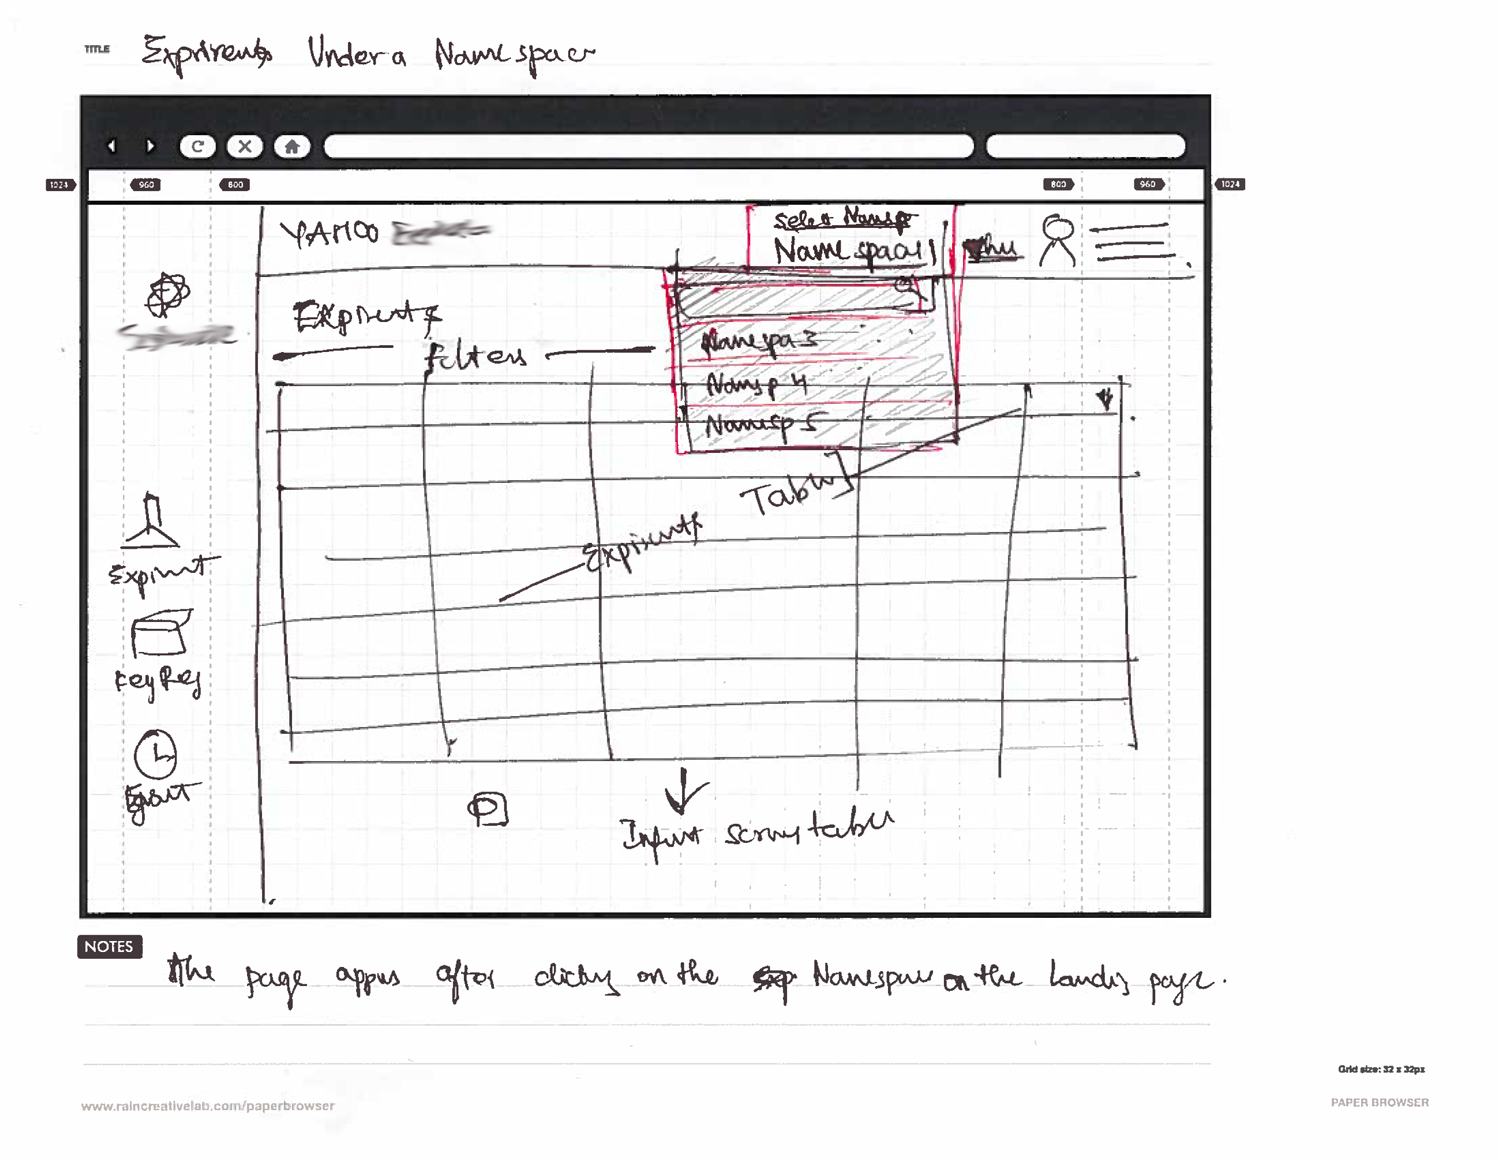 TITLE Expriments Under a Namespace
1024 960 800 800 960 1024
YAHOO
Select Namsp
Namespace 1
Expriments
filters
Namespa 3
Namsp 4
Namesp 5
Table
Expriments
Expirmt
Key Reg
Input scrny table
NOTES
The page appers after clickng on the Namespace on the Landing page.
Grid size: 32 x 32px
www.raincreativelab.com/paperbrowser
PAPER BROWSER